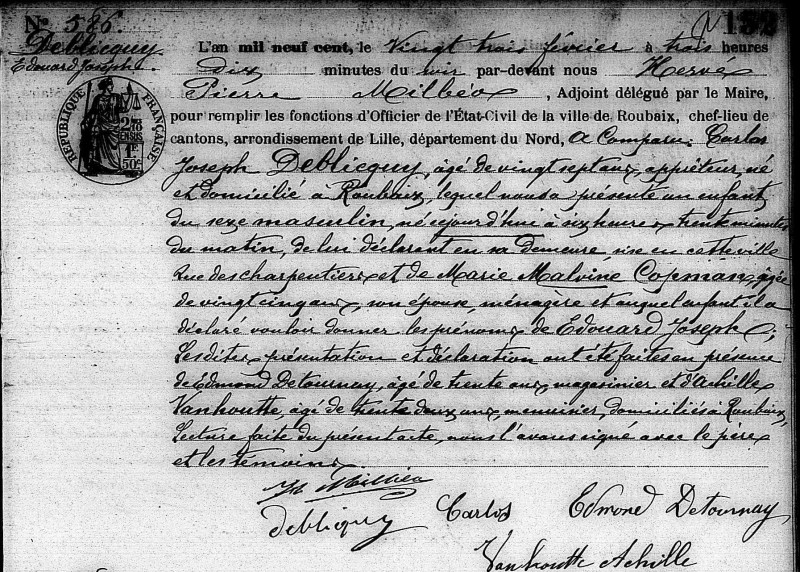 N° 586.
Deblicquy
Edouard Joseph
132
RÉPUBLIQUE FRANÇAISE
L'an mil neuf cent, le Vingt trois février à trois heures
Dix minutes du soir par-devant nous Hervé
Pierre Milbéo, Adjoint délégué par le Maire,
pour remplir les fonctions d'Officier de l'État-Civil de la ville de Roubaix, chef-lieu de
cantons, arrondissement de Lille, département du Nord, a Comparu: Carlos
Joseph Deblicquy, âgé de vingt sept ans, apprêteur, né
et domicilié à Roubaix, lequel nous a présenté un enfant
du sexe masculin, né cejourd'hui à six heures trente minutes
du matin, de lui déclarant en sa demeure, sise en cette ville
rue des charpentiers et de Marie Malvine Copman, âgée
de vingt cinq ans, son épouse, ménagère et auquel enfant il a
déclaré vouloir donner les prénoms de Edouard Joseph;
Lesdites présentation et déclaration ont été faites en présence
de Edmond Detournay, âgé de trente ans, magasinier et d'Achille
Vanhoutte, âgé de trente deux ans, menuisier, domiciliés à Roubaix,
Lecture faite du présent acte, nous l'avons signé avec le père
et les témoins.
deblicquy Carlos Edmond Detournay
Vanhoutte Achille